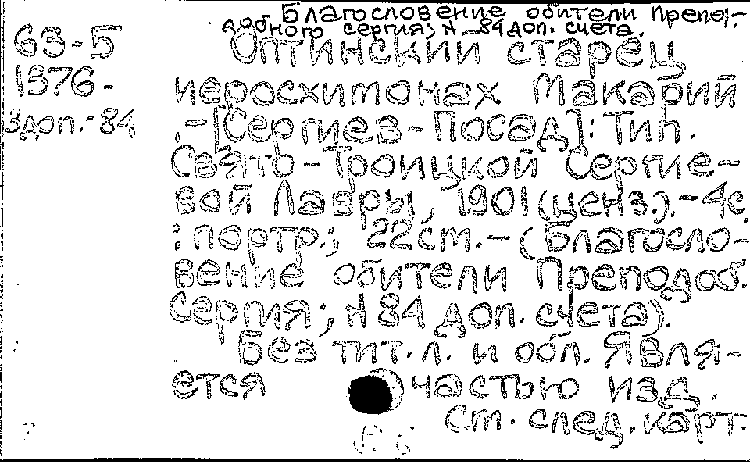 Благословение обители препо-
добного сергия; N 84 доп. счета.
63-5
1376-
3доп.-84
Оптинский старец
иеросхимонах Макарий
.-[Сергиев-Посад]: Тип.
Свято-Троицкой Сергие-
вой Лавры, 1901 (ценз.).-4с.
: портр.; 22см.-(Благосло-
вение обители Преподоб.
Сергия; N 84 доп. счета).
Без тит. л. и обл. Явля-
ется частью изд.
См. след. карт.